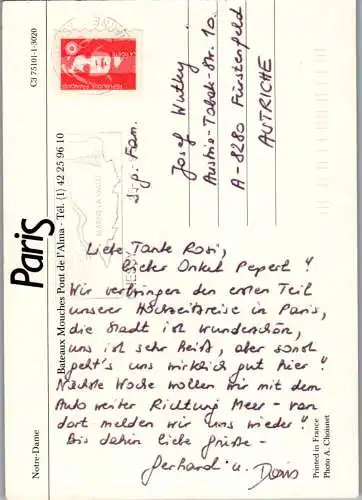 C3 75101-1-3020
RÉPUBLIQUE FRANÇAISE
LA POSTE
Paris
Bateaux Mouches Pont de l'Alma - Tél. (1) 42 25 96 10
MARNE LA VALLÉE
Notre-Dame
Printed in France
Photo A. Choisnet
Fam.
Josef Wutky
Austria-Tabak-Str. 10
A-8280 Fürstenfeld
AUTRICHE
Liebe Tante Rosi,
lieber Onkel Pepert!
Wir verbringen den ersten Teil
unserer Hochzeitsreise in Paris,
die Stadt ist wunderschön,
uns ist sehr heiß, aber sonst
geht's uns wirklich gut hier!
Nächste Woche wollen wir mit dem
Auto weiter Richtung Meer - von
dort melden wir uns wieder!
Bis dahin liebe Grüße -
Gerhard u. Doris